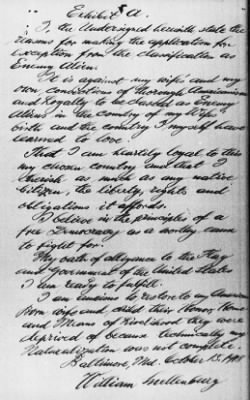 Exhibit A.
I, the Undersigned herewith state the
reasons for making the application for
Exception from the Classification as
Enemy Alien.
It is against my wife's and my
own convictions of thorough Americanism
and Loyalty to be classed as Enemy
Aliens in the country of my Wife's
birth and the country I myself have
learned to love.
That I am heartily loyal to this
my chosen country and that I
cherish as much as any native
Citizen, the liberty, rights and
obligations it affords.
I believe in the principles of a
free Democracy as a worthy cause
to fight for.
My oath of allegiance to the Flag
and Government of the United States
I am ready to fulfill.
I am anxious to restore to my American
born wife and child their Honor, Home
and Means of livelihood they are
deprived of because technically my
Naturalization was not complete.
Baltimore, Md. October 15. 1918
William